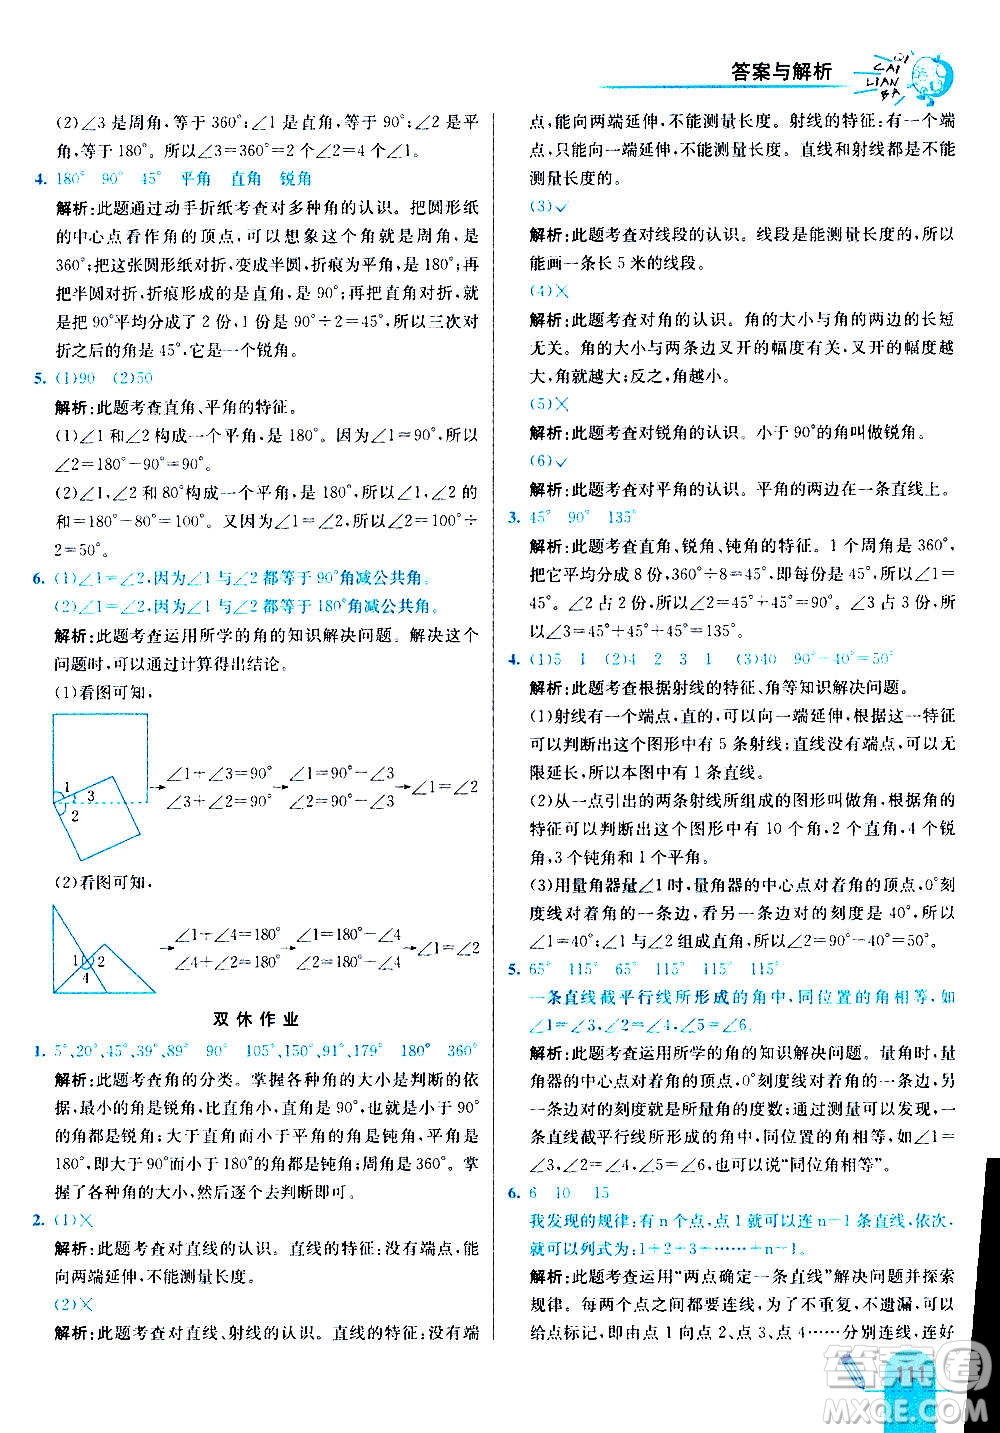 答案与解析
QI
CAI
LIAN
BA
(2)∠3是周角,等于360°;∠1是直角,等于90°;∠2是平
角,等于180°。所以∠3=360°=2个平角=4个直角。
4. 180° 90° 45° 平角 直角 锐角
解析:此题通过动手折纸考查对多种角的认识。把圆形纸
的中心点看作角的顶点,可以想象这个圆形就是周角,是
360°;把这张圆形纸对折,变成半圆,折痕是平角,是180°;再
把半圆对折,折痕形成的是直角,是90°;第三次对折,其实
就是把90°平均分成了2份,1份是90°÷2=45°,所以三次对
折之后的角是45°,它是一个锐角。
5. (1)90 (2)50
解析:此题考查直角、平角的特征。
(1)∠1和∠2构成一个平角,是180°。因为∠1=90°,所以
∠2=180°-90°=90°。
(2)∠1、∠2和80°构成一个平角,是180°,所以∠1、∠2的
和=180°-80°=100°。又因为∠1=∠2,所以∠2=100°÷
2=50°。
6. (1)∠1=∠2,因为∠1与∠2都等于90°角减公共角。
(2)∠1=∠2,因为∠1与∠2都等于180°角减公共角。
解析:此题考查运用所学的角的知识解决问题。解决这个
问题时,可以通过计算得出结论。
(1)看图可知,
1 3 2
→∠1+∠3=90° ∠3+∠2=90° →∠1=90°-∠3 ∠2=90°-∠3 →∠1=∠2
(2)看图可知,
1 2 4
→∠1+∠4=180° ∠4+∠2=180° →∠1=180°-∠4 ∠2=180°-∠4 →∠1=∠2
双休作业
1. 5°、20°、45°、39°、89° 90° 105°、150°、91°、179° 180° 360°
解析:此题考查角的分类。掌握各种角的大小是判断的依
据,最小的角是锐角,比直角小,直角是90°,也就是小于90°
的角都是锐角;大于直角而小于平角的角是钝角,平角是
180°,即大于90°而小于180°的角都是钝角;周角是360°。掌
握了各种角的大小,然后逐个去判断即可。
2. (1)×
解析:此题考查对直线的认识。直线的特征:没有端点,能
向两端延伸,不能测量长度。
(2)×
解析:此题考查对直线、射线的认识。直线的特征:没有端
点,能向两端延伸,不能测量长度。射线的特征:有一个端
点,能向一端延伸,不能测量长度。直线和射线都是不能
测量长度的。
(3)✓
解析:此题考查对线段的认识。线段是能测量长度的,所以
能画一条长5米的线段。
(4)×
解析:此题考查对角的认识。角的大小与角的两边的长短
无关。角的大小与两条边叉开的幅度有关,叉开的幅度越
大,角就越大;反之,角越小。
(5)×
解析:此题考查对锐角的认识。小于90°的角叫做锐角。
(6)✓
解析:此题考查对平角的认识。平角的两边在一条直线上。
3. 45° 90° 135°
解析:此题考查直角、锐角、钝角的特征。1个周角是360°,
把它平均分成8份,360°÷8=45°。∠1占1份,所以∠1=
45°。∠2占2份,所以∠2=45°+45°=90°。∠3占3份,所
以∠3=45°+45°+45°=135°。
4. (1)5 1 (2)4 2 3 1 (3)40 90°-40°=50°
解析:此题考查根据射线的特征、角等知识解决问题。
(1)射线有一个端点,是直的,可以向一端延伸,根据这一特征
可以判断出这个图形中有5条射线;直线没有端点,可以无
限延长,所以本图中有1条直线。
(2)从一点引出的两条射线所组成的图形叫做角,根据角的
特征可以判断出这个图形中有10个角,2个直角,4个锐
角,3个钝角和1个平角。
(3)用量角器量∠1时,量角器的中心点对着角的顶点,0°刻
度线对着角的一条边,看另一条边对着的刻度是40°,所以
∠1=40°;∠1与∠2组成直角,所以∠2=90°-40°=50°。
5. 65° 115° 65° 115° 115° 115°
一条直线截平行线所形成的角中,同位置的角相等,如
∠1=∠5,∠2=∠6。
解析:此题考查运用所学的角的知识解决问题。量角时,量
角器的中心点对着角的顶点,0°刻度线对着角的一条边,另
一条边对的刻度就是所量角的度数;通过测量可以发现,一
条直线截平行线所形成的角中,同位置的角相等,如
∠1=∠3,∠2=∠4,∠5=∠7,也可以说“同位角相等”。
6. 6 10 15
我发现的规律:有n个点,点1就可以连n-1条直线,依次,
就可以列式为:1+2+3+……+n-1。
解析:此题考查运用“两点确定一条直线”解决问题并探索
规律。每两个点之间都要连线,为了不重复,不遗漏,可以
给点标记,如点1、点2、点3、点4……分别连线,连好
111
答案卷
MXQE.COM